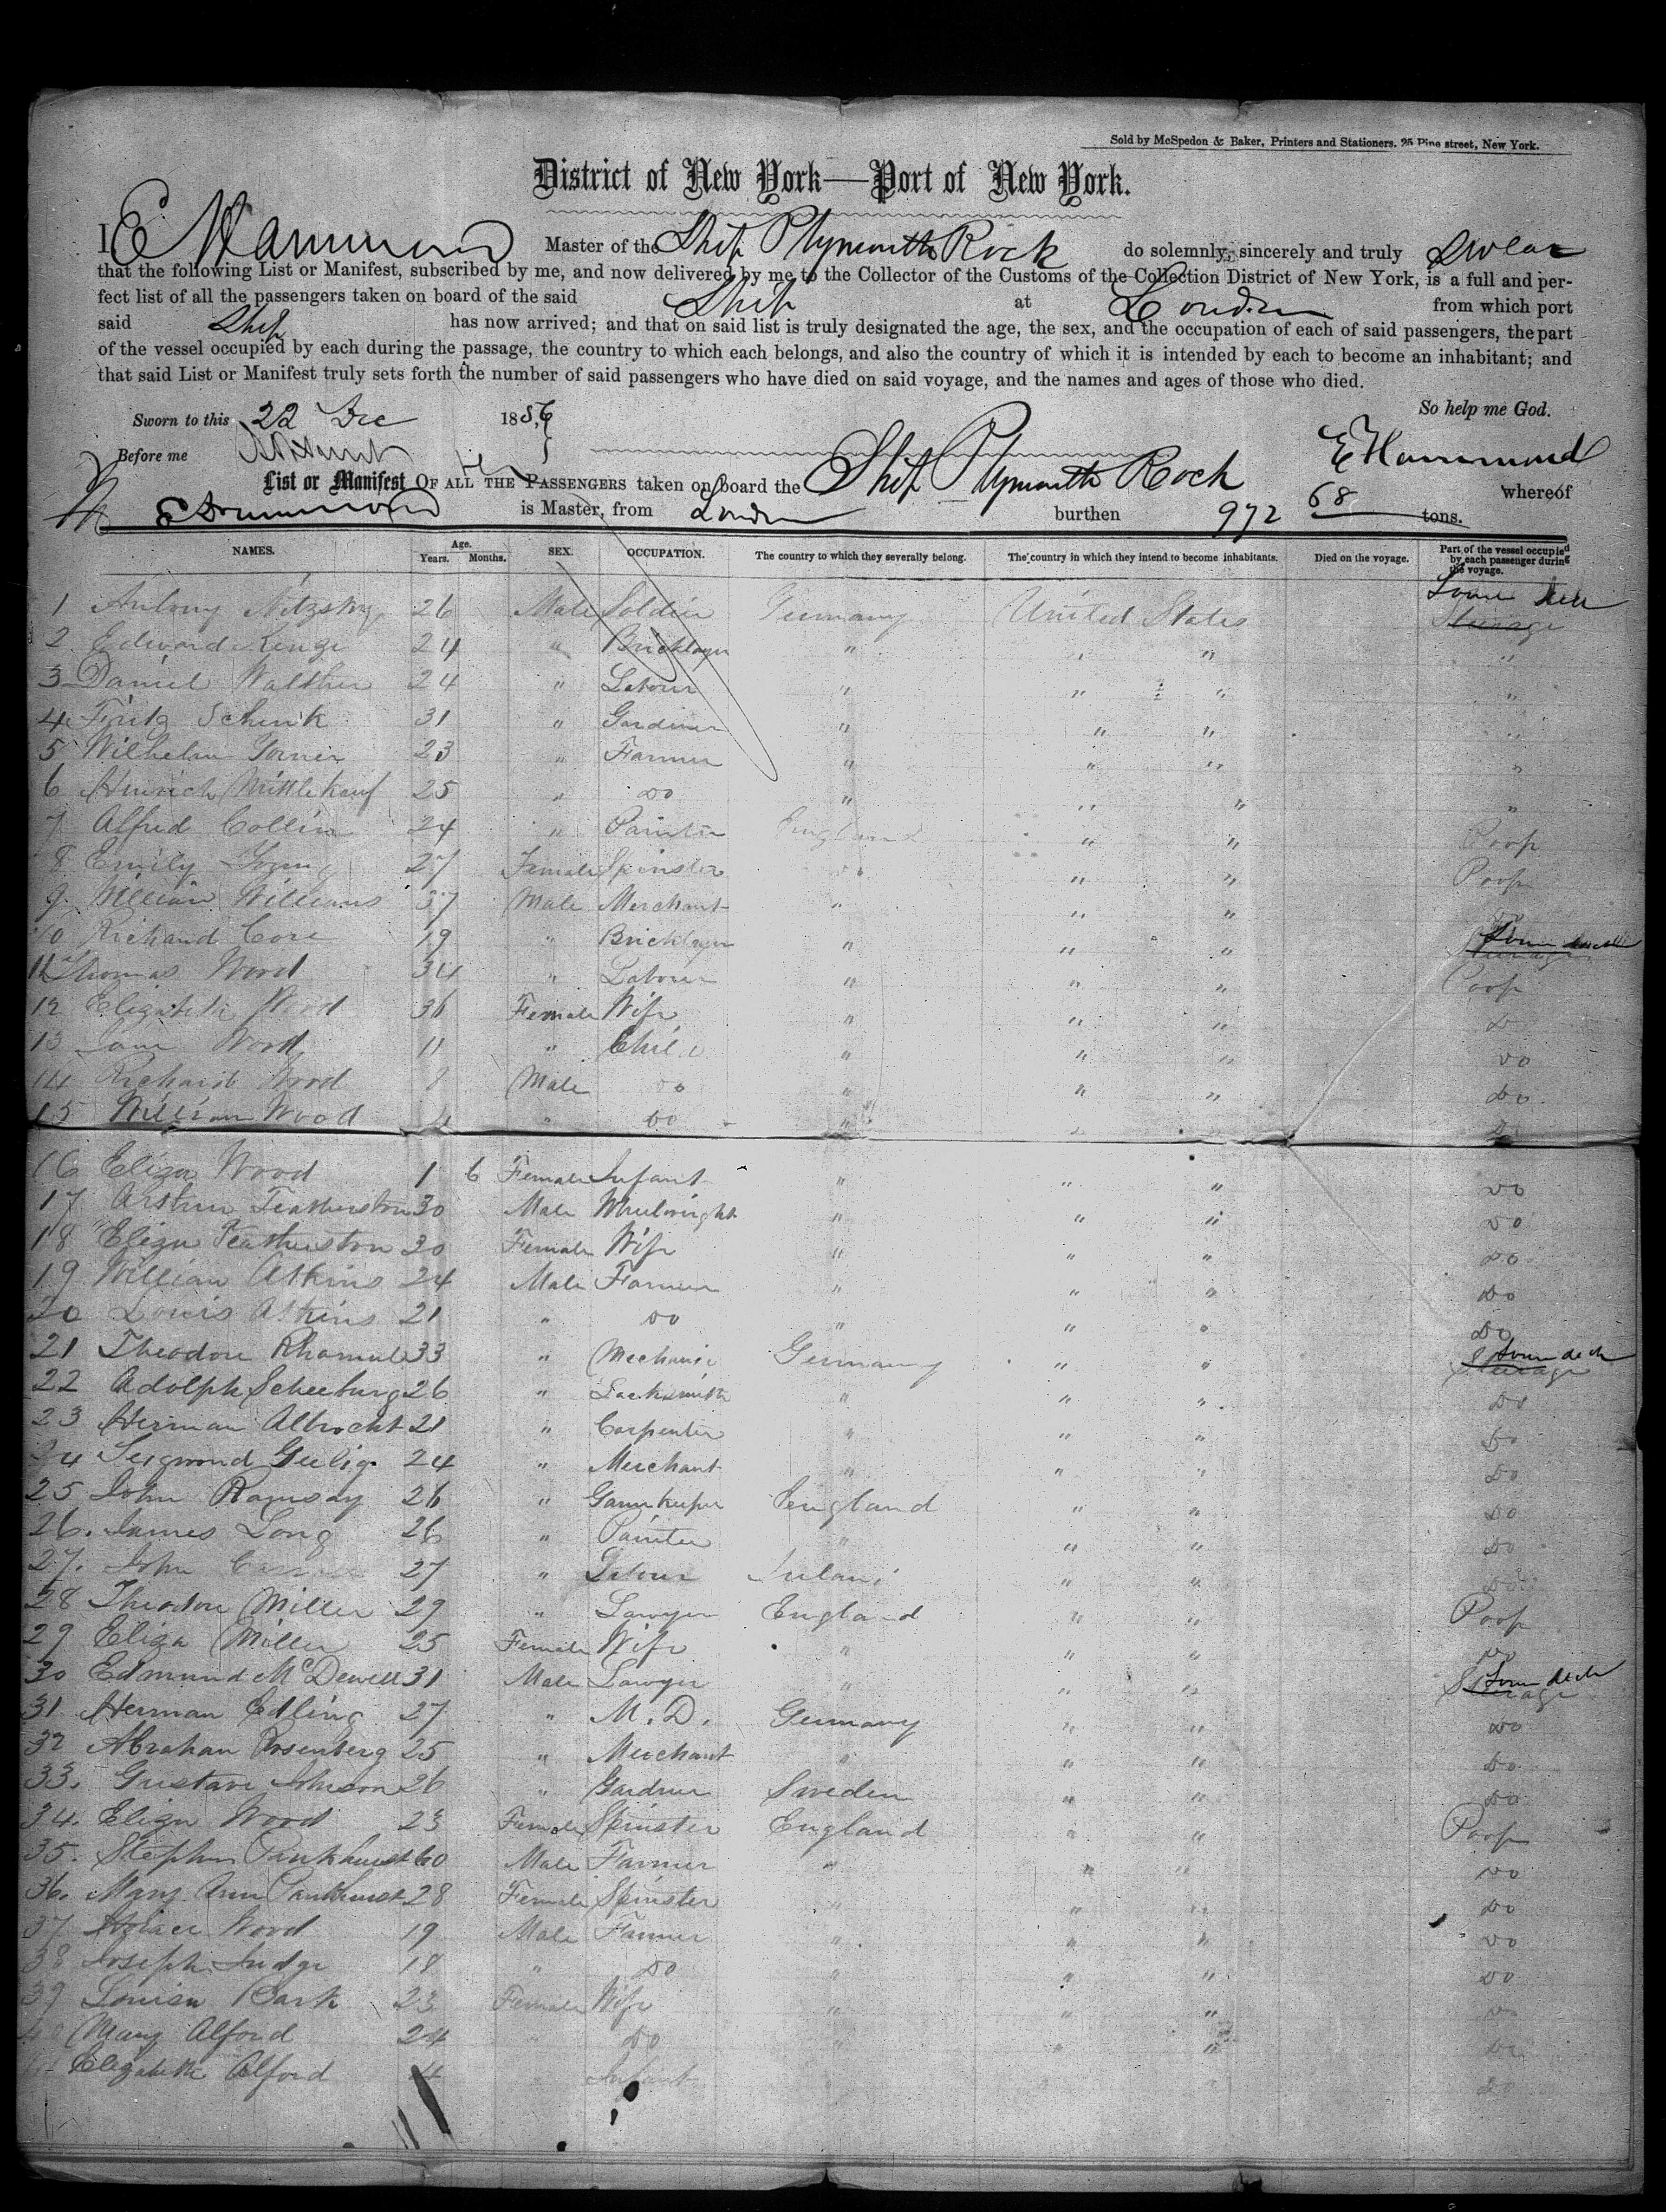 Sold by McSpedon & Baker, Printers and Stationers, 25 Pine street, New York.
District of New York—Port of New York.
I E Hammond Master of the Ship Plymouth Rock do solemnly, sincerely and truly swear
that the following List or Manifest, subscribed by me, and now delivered by me to the Collector of the Customs of the Collection District of New York, is a full and per-
fect list of all the passengers taken on board of the said Ship at London from which port
said Ship has now arrived; and that on said list is truly designated the age, the sex, and the occupation of each of said passengers, the part
of the vessel occupied by each during the passage, the country to which each belongs, and also the country of which it is intended by each to become an inhabitant; and
that said List or Manifest truly sets forth the number of said passengers who have died on said voyage, and the names and ages of those who died.
So help me God.
Sworn to this 22 Dec 1856
Before me E Hammond
List or Manifest OF ALL THE PASSENGERS taken on board the Ship Plymouth Rock whereof
is Master, from London burthen 972 68 tons.
NAMES. Age. Years. Months. SEX. OCCUPATION. The country to which they severally belong. The country in which they intend to become inhabitants. Died on the voyage. Part of the vessel occupied by each passenger during the voyage.
1 Antony 26 Male Soldier Germany United States Steerage
2 Edward 24 " Bricklayer " " " "
3 Daniel Walther 24 " Labour " " " "
4 Fritz Schenk 31 " Gardiner " " " "
5 Wilhelm 23 " Farmer " " " "
6 Heinrich Mittlekauf 25 " Do " " " "
7 Alfred Collin 24 " Painter England " " Poop
8 Emily Young 27 Female Spinster " " " Poop
9 William Williams 37 Male Merchant " " "
10 Richard Core 19 " Bricklayer " " " Steerage
11 Thomas Wood 34 " Labour " " " Poop
12 Elizabeth Wood 36 Female Wife " " " Do
13 Jane Wood 11 " Child " " " Do
14 Richard Wood 8 Male Do " " " Do
15 William Wood 4 " Do " " " Do
16 Eliza Wood 1 6 Female Infant " " " Do
17 Arthur Featherston 30 Male Wheelwright " " " Do
18 Eliza Featherston 30 Female Wife " " " Do
19 William Atkins 24 Male Farmer " " " Do
20 Louis Atkins 21 " Do " " " Do
21 Theodore 33 " Mechanic Germany " " Steerage
22 Adolph Scheeburg 26 " Locksmith " " " Do
23 Herman Albrocht 21 " Carpenter " " " Do
24 Seigmond 24 " Merchant " " " Do
25 John Ramsay 26 " Gamekeeper England " " Do
26. James Long 26 " Painter " " " Do
27. John 27 " Labour Ireland " " Do
28 Theodore Miller 29 " Lawyer England " " Poop
29 Eliza Miller 25 Female Wife " " " Do
30 Edmund McDewell 31 Male Lawyer " " " Steerage
31 Herman Edling 27 " M.D. Germany " " Do
32 Abraham Rosenberg 25 " Merchant " " " Do
33. Gustave Johnson 26 " Gardner Sweden " " Do
34. Eliza Wood 23 Female Spinster England " " Poop
35. Stephen Pankhurst 60 Male Farmer " " " Do
36. Mary Ann Pankhurst 28 Female Spinster " " " Do
37 Horace Wood 19 Male Farmer " " " Do
38 Joseph Judge 18 " Do " " " Do
39 Louisa Bark 23 Female Wife " " " Do
40 Mary Alford 24 " Do " " " Do
41 Elizabeth Alford 4 Infant " " " Do